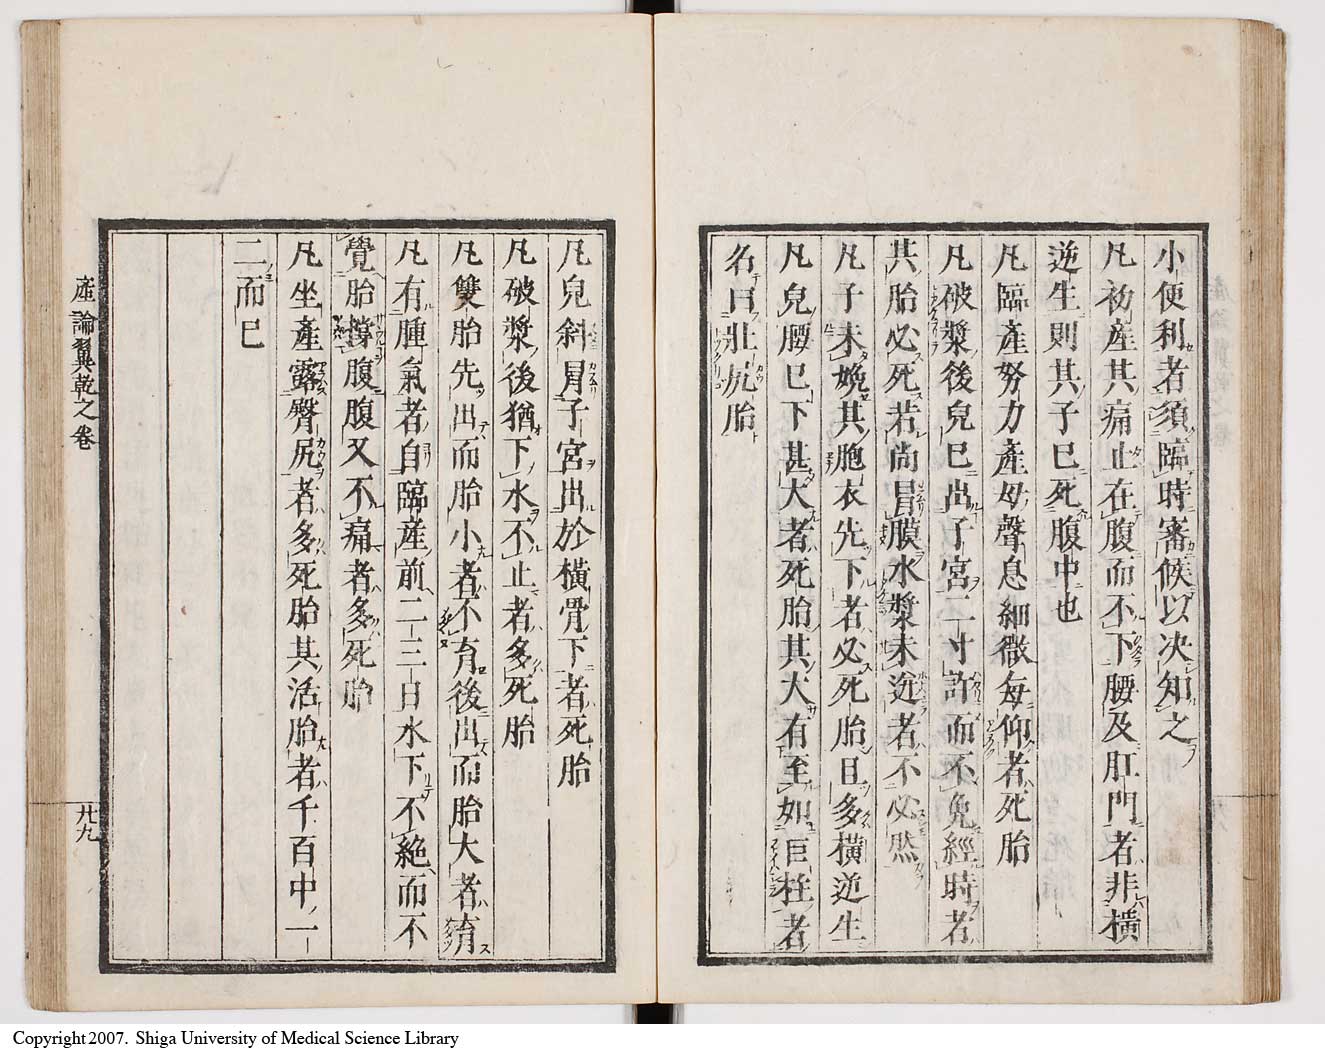 小便利者須臨時審候以决知之
凡初産其痛止在腹而不下腰及肛門者非橫
逆生則其子巳死腹中也
凡臨產努力產母聲息細微每仰者死胎
凡破漿後兒巳出子宮二寸許而不免經時者
其胎必死若尚冒膜水漿未迸者不必然
凡子未娩其胞衣先下者必死胎且多橫逆生
凡兒腰巳下甚大者死胎其大有至如巨柱者
名曰壯尻胎
凡兒斜冒子宮出於橫骨下者死胎
凡破漿後猶下水不止者多死胎
凡雙胎先出而胎小者不育後出而胎大者育
凡有腫氣者自臨産前二三日水下不絕而不
覺胎撐腹腹又不痛者多死胎
凡坐產露臀尻者多死胎其活胎者千百中一
二而巳
產論翼乾之卷
廿九
Copyright 2007. Shiga University of Medical Science Library